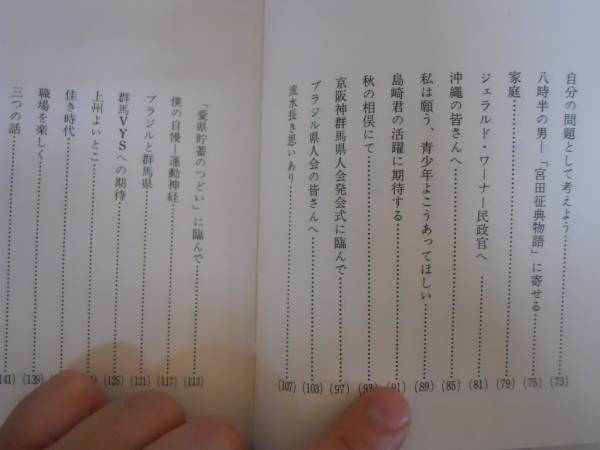 自分の問題として考えよう……(73)
八時半の男―「宮田征典物語」に寄せる……(75)
家庭……(79)
ジェラルド・ワーナー民政官へ……(81)
沖縄の皆さんへ……(85)
私は願う、青少年よこうあってほしい……(89)
島崎君の活躍に期待する……(91)
秋の相俣にて……(93)
京阪神群馬県人会発会式に臨んで……(97)
ブラジル県人会の皆さんへ……(103)
流水長き思いあり……(107)
「愛県貯蓄のつどい」に臨んで……(113)
僕の自慢―運動神経……(117)
ブラジルと群馬県……(121)
群馬VYSへの期待……(125)
上州よいとこ……
佳き時代……
職場を楽しく……(139)
三つの話……(141)